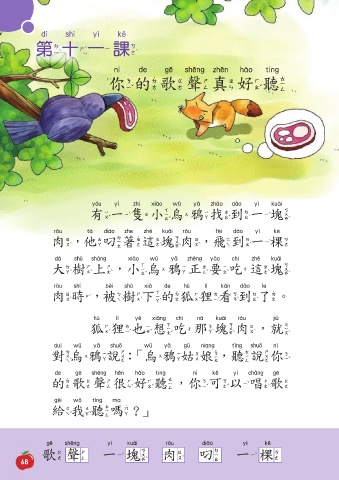 dì shí yī kè
第十一課
nǐ de gē shēng zhēn hǎo tīng
你的歌聲真好聽
yǒu yì zhī xiǎo wū yā zhǎo dào yí kuài
有一隻小烏鴉找到一塊
ròu tā diāo zhe zhè kuài ròu fēi dào yì kē
肉，他叼著這塊肉，飛到一棵
dà shù shàng xiǎo wū yā zhèng yào chī zhè kuài
大樹上，小烏鴉正要吃這塊
ròu shí bèi shù xià de hú lí kàn dào le
肉時，被樹下的狐狸看到了。
hú lí yě xiǎng chī nà kuài ròu jiù
狐狸也想吃那塊肉，就
duì wū yā shuō wū yā gū niang tīng shuō nǐ
對烏鴉說：「烏鴉姑娘，聽說你
de gē shēng hěn hǎo tīng nǐ kě yǐ chàng gē
的歌聲很好聽，你可以唱歌
gěi wǒ tīng ma
給我聽嗎？」
gē shēng yí kuài ròu diāo yì kē
歌聲 一塊 肉 叼 一棵
68